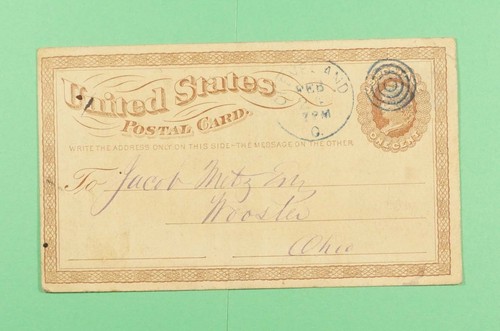 United States
CLEVELAND
POSTAL CARD.
FEB
7 PM
O.
ONE CENT
WRITE THE ADDRESS ONLY ON THIS SIDE-THE MESSAGE ON THE OTHER
To Jacob Metz Esq
Wooster
Ohio